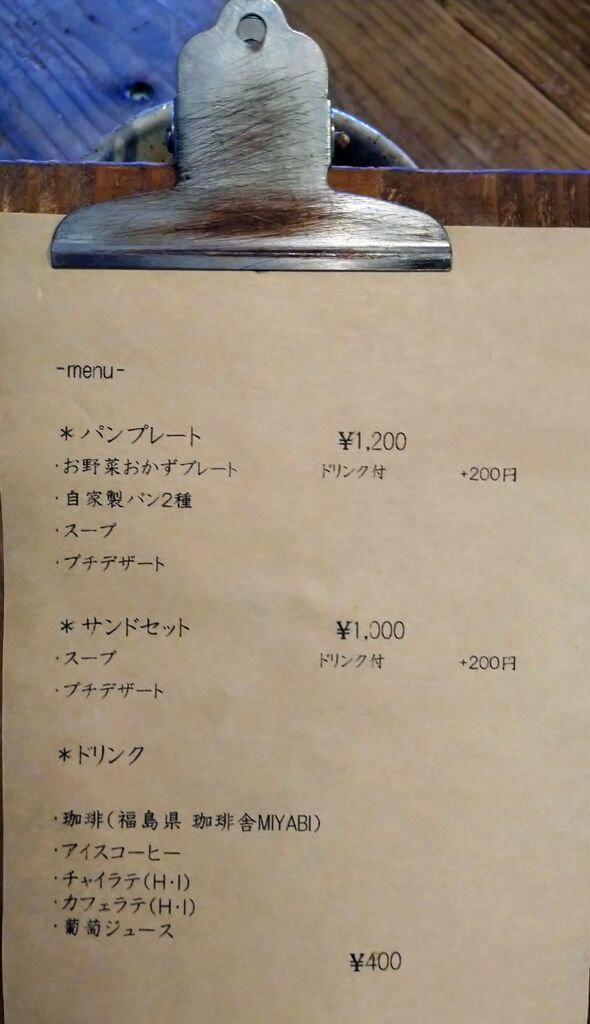 -menu-
＊パンプレート ¥1,200
・お野菜おかずプレート ドリンク付 +200円
・自家製パン2種
・スープ
・プチデザート
＊サンドセット ¥1,000
・スープ ドリンク付 +200円
・プチデザート
＊ドリンク
・珈琲(福島県 珈琲舎MIYABI)
・アイスコーヒー
・チャイラテ(H・I)
・カフェラテ(H・I)
・葡萄ジュース
¥400